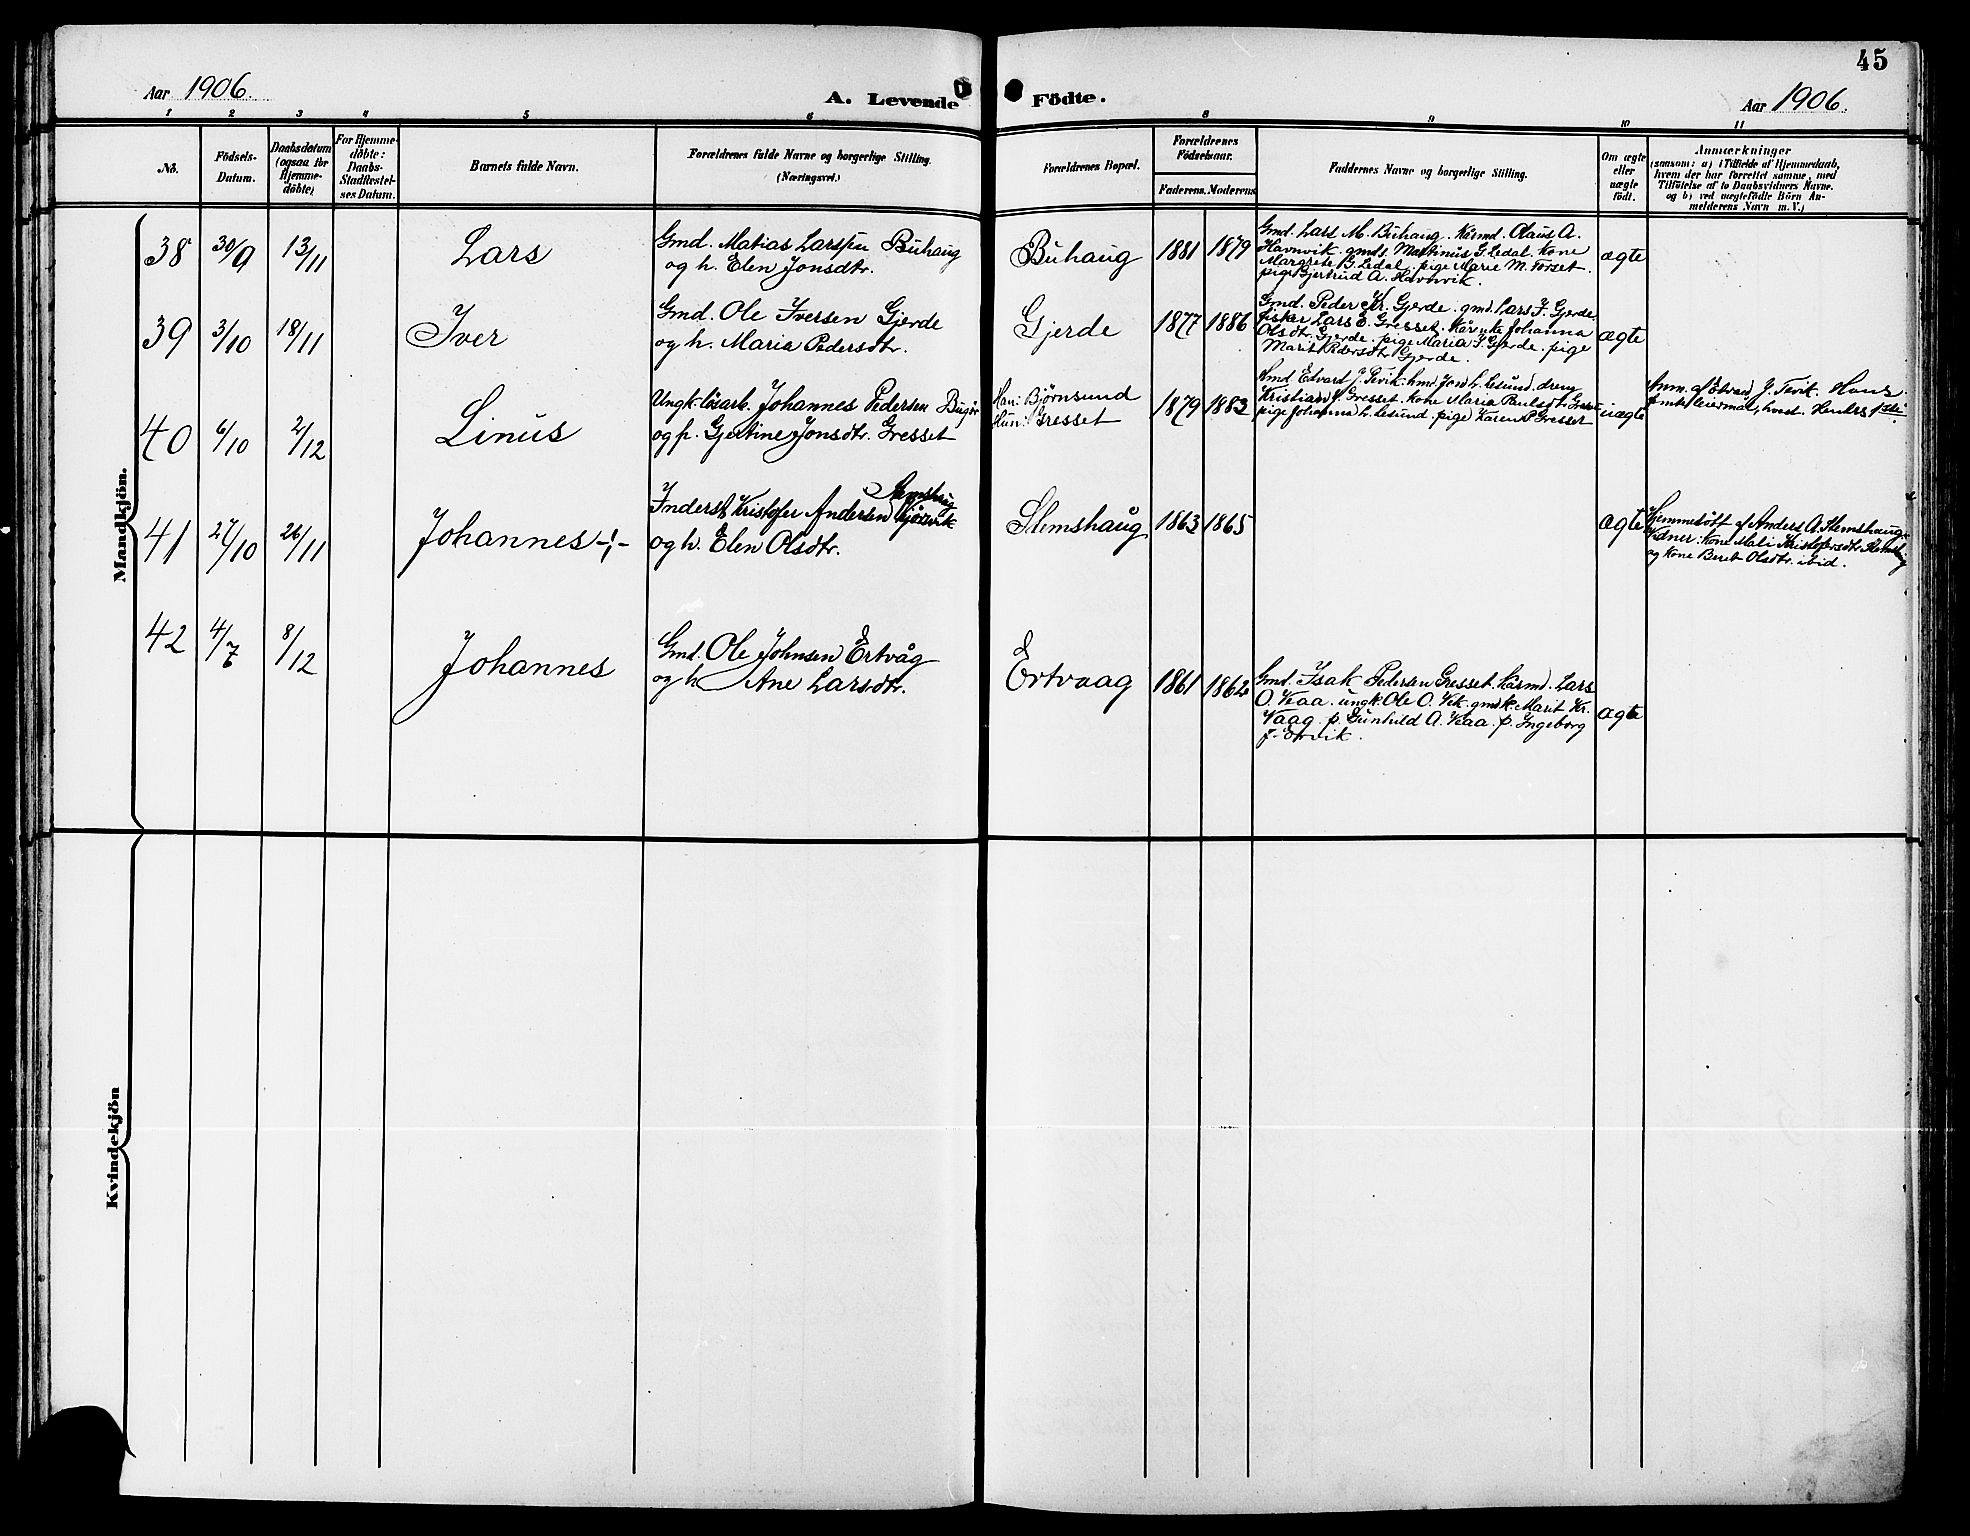 45
Aar 1906.
A. Levende Födte.
Aar 1906.
1 2 3 4 5 6 8 9 10 11
No.
Födsels-
Datum.
Daabsdatum
(ogsaa for
Hjemme-
döbte)
For Hjemme-
döbte:
Daabs-
Stadfæstel-
ses Datum.
Barnets fulde Navn.
Forældrenes fulde Navne og borgerlige Stilling.
(Næringsvei.)
Forældrenes Bopæl.
Forældrenes
Födselsaar.
Faderens. Moderens.
Faddernes Navne og borgerlige Stilling.
Om ægte
eller
uægte
födt.
Anmærkninger
(saasom: a) i Tilfælde af Hjemmedaab,
hvem der har forrettet samme, med
Tilföielse af to Daabsvidners Navne.
og b) ved uægtefödte Börn An-
melderens Navn m. V.)
Mandkjön.
38 30/9 13/11 Lars
Gmd. Matias Larssen Buhaug
og h. Elen Jonsdtr.
Buhaug 1881 1879
Gmd. Lars M. Buhaug. Kårmd. Olaus A.
Havnvik. gmds. Martinus G. Ledal. Kone
Margrete B. Ledal. pige Marie M. Torset.
pige Gjertrud A. Havnvik.
ægte
39 3/10 18/11 Iver
Gmd. Ole Iversen Gjerde
og h. Maria Pedersdtr.
Gjerde 1877 1886
Gmd. Peder Kr. Gjerde. gmd. Lars I. Gjerde.
fisker Lars E. Gresset. Kårenke Johanna
Olsdtr. Gjerde. pige Maria I. Gjerde. pige
Marit Pedersdtr. Gjerde.
ægte
40 6/10 2/12 Linus
Ungk. lösarb. Johannes Pedersen
og p. Gjertine Jonsdtr. Gresset
Han: Björnsund
Hun: Gresset
1879 1883
Hmd Edvart J. Tevik. hmd. Jon L. Lesund. dreng
Kristian J. Gresset. Kone Maria Paulsdtr.
pige Johanna L. Lesund. pige Karen P. Gresset
uægte
Anm. af Edvard J. Tevik. Hans
41 27/10 26/11 Johannes -,-
Slemshaug
Inderst Kristofer Andersen
og h. Elen Olsdtr.
Slemshaug 1863 1865
ægte
Hjemmedöbt af Anders A. Slemshaug.
Vidner: Kone Mali Kristofersdtr.
og Kone Beret Olsdtr. ibid.
42 4/7 8/12 Johannes
Gmd. Ole Johnsen Ertvåg
og h. Ane Larsdtr.
Ertvaag 1861 1862
Gmd. Isak Pedersen Gresset. Kårmd. Lars
O. Vaa. ungk. Ole O. Vik. gmdk. Marit Kr.
Vaag. p. Gunhild A. Vaa. p. Ingeborg
J.
ægte
Kvindekjön